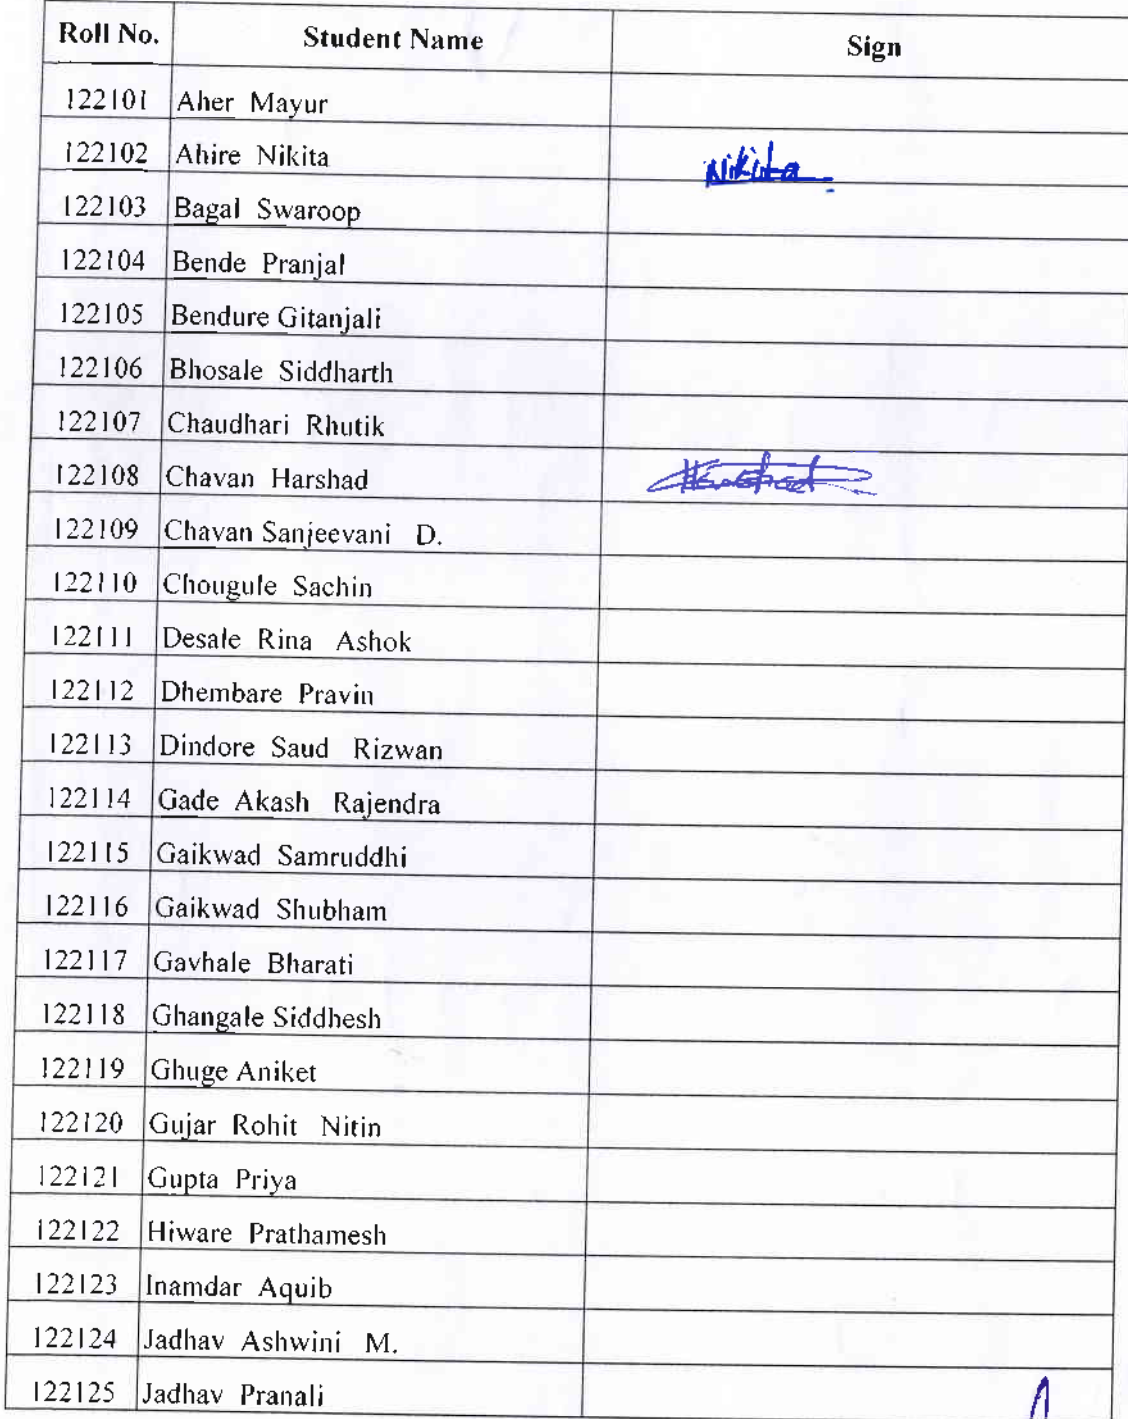 Roll No. Student Name Sign
122101 Aher Mayur
122102 Ahire Nikita Nikita
122103 Bagal Swaroop
122104 Bende Pranjal
122105 Bendure Gitanjali
122106 Bhosale Siddharth
122107 Chaudhari Rhutik
122108 Chavan Harshad Harshad
122109 Chavan Sanjeevani D.
122110 Chougule Sachin
122111 Desale Rina Ashok
122112 Dhembare Pravin
122113 Dindore Saud Rizwan
122114 Gade Akash Rajendra
122115 Gaikwad Samruddhi
122116 Gaikwad Shubham
122117 Gavhale Bharati
122118 Ghangale Siddhesh
122119 Ghuge Aniket
122120 Gujar Rohit Nitin
122121 Gupta Priya
122122 Hiware Prathamesh
122123 Inamdar Aquib
122124 Jadhav Ashwini M.
122125 Jadhav Pranali